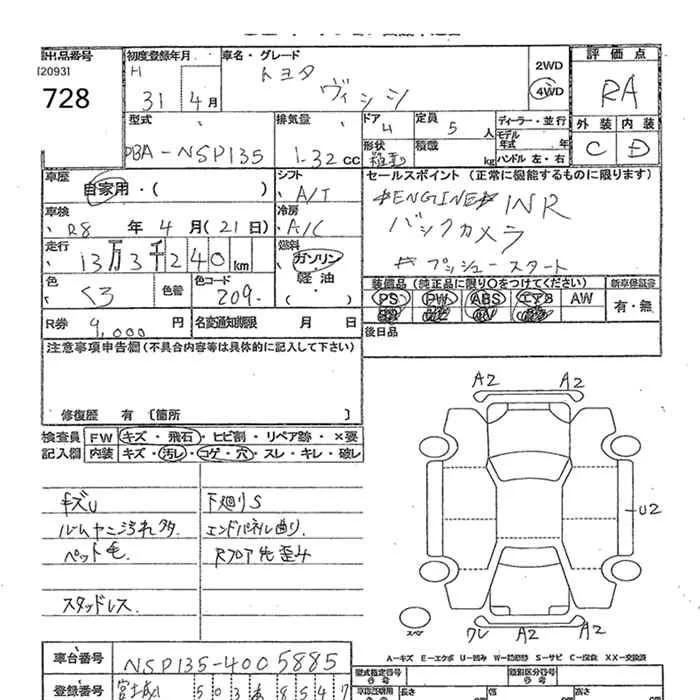 出品番号
[2093]
728
初度登録年月
H
31 4月
車名・グレード
トヨタ
ヴィシシ
2WD
4WD
評価点
RA
外装 内装
C D
型式
DBA-NSP135
排気量
1.32 cc
ドア
4
定員
5 人
ディーラー・並行
モデル年式 年
ハンドル 左・右
形状
箱型
積載
kg
車歴
自家用・( )
シフト
A/T
セールスポイント (正常に機能するものに限ります)
#ENGINE# 1NR
バックカメラ
# プッシュースタート
車検
R8 年 4 月(21日)
冷房
A/C
走行
13万3千240 km
燃料
ガソリン
軽油
( )
色
くろ
色替
色コード
209.
装備品 (純正品に限り○をつけてください)
PS PW ABS エアB AW
新車保証書
有・無
R券
9,000 円
名変通知期限 月 日
後日品
注意事項申告欄 (不具合内容等は具体的に記入して下さい)
修復歴 有 〔箇所 〕
検査員記入欄
FW キズ・飛石・ヒビ割・リペア跡・×要
内装 キズ・汚レ・コゲ・穴・スレ・キレ・破レ
キズU
ルームヤニ汚れ多
ペット毛
スタッドレス
下廻りS
エンドパネル曲り
Rフロア先歪み
A2 A2
U2
スペア
ワレ A2 A2
A-キズ E-エクボ U-凹み W-補修跡 S-サビ C-腐食 XX-交換済
車台番号
NSP135-4005885
登録番号
富士山 503 あ 8547
型式指定番号
類別区分番号
長さ
幅
高さ